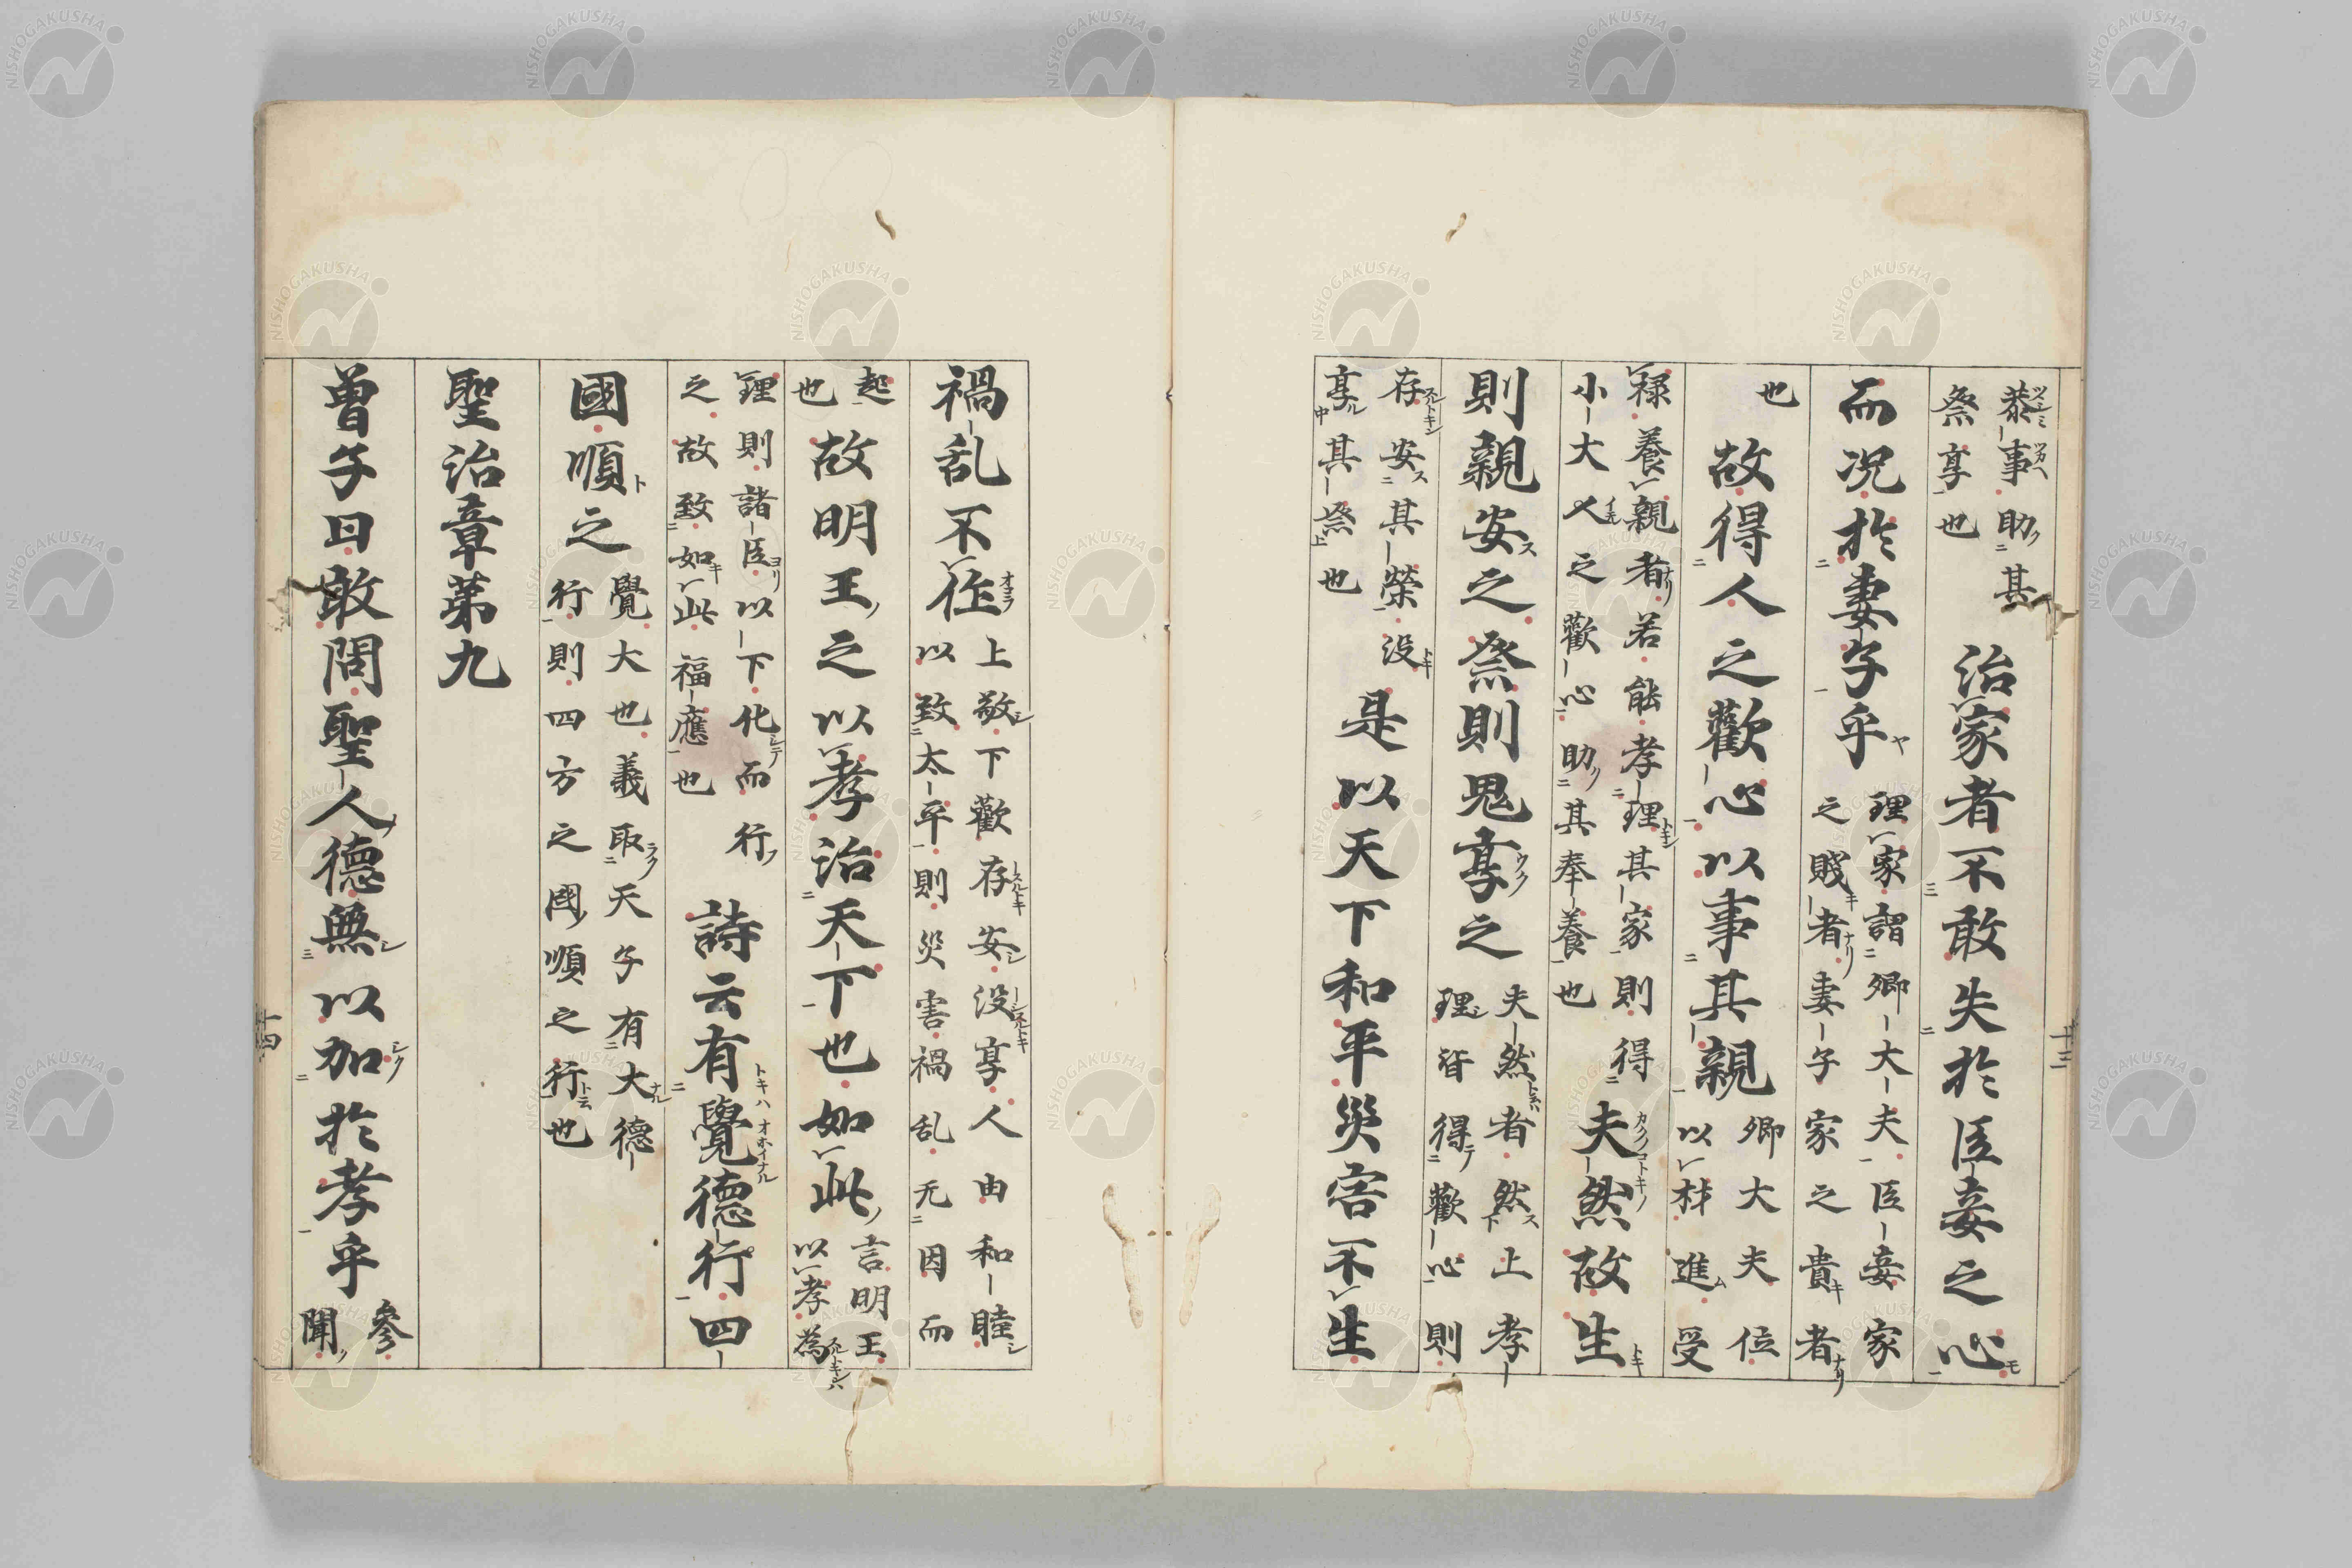 恭事助其
祭享也
治家者不敢失於臣妾之心
而况於妻子乎
理家謂卿大夫臣妾家
之賤者妻子家之貴者
也
故得人之歡心以事其親
卿大夫位
以材進受
禄養親者若能孝理其家則得
小大人之歡心助其奉養也
夫然故生
則親安之祭則鬼享之
夫然者然上孝
理皆得歡心則
存安其榮没
享其祭也
是以天下和平災害不生
禍乱不作
上敬下歡存安没享人由和睦
以致太平則災害禍乱无因而
起
也
故明王之以孝治天下也如此
言明王
以孝為
理則諸臣以下化而行
之故致如此福應也
詩云有覺德行四
國順之
覺大也義取天子有大德
行則四方之國順之行也
聖治章第九
曽子曰敢問聖人德無以加於孝乎
參
聞
十三
十四
NISHOGAKUSHA